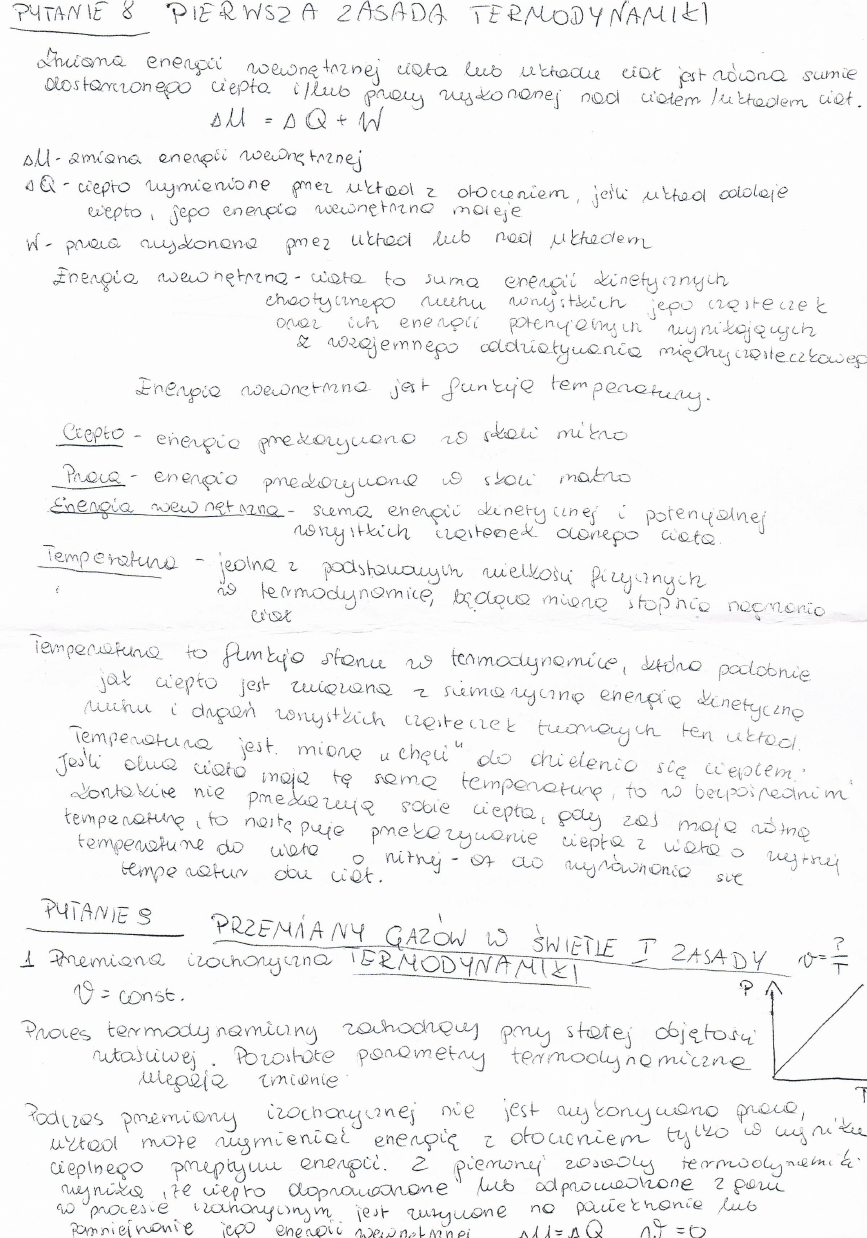 PYTANIE 8 PIERWSZA ZASADA TERMODYNAMIKI
Zmiana energii wewnętrznej ciała lub układu ciał jest równa sumie
dostarczonego ciepła i/lub pracy wykonanej nad ciałem/układem ciał.
ΔU = ΔQ + W
ΔU - zmiana energii wewnętrznej
ΔQ - ciepło wymienione przez układ z otoczeniem, jeśli układ oddaje
ciepło, jego energia wewnętrzna maleje
W - praca wykonana przez układ lub nad układem
Energia wewnętrzna - ciała to suma energii kinetycznych
chaotycznego ruchu wszystkich jego cząsteczek
oraz ich energii potencjalnych wynikających
z wzajemnego oddziaływania międzycząsteczkowego
Energia wewnętrzna jest funkcją temperatury.
Ciepło - energia przekazywana w skali mikro
Praca - energia przekazywana w skali makro
Energia wewnętrzna - suma energii kinetycznej i potencjalnej
wszystkich cząsteczek danego ciała.
Temperatura - jedna z podstawowych wielkości fizycznych
w termodynamice, będąca miarą stopnia nagrzania
ciał
Temperatura to funkcja stanu w termodynamice, która podobnie
jak ciepło jest związana z sumaryczną energią kinetyczną
ruchu i drgań wszystkich cząsteczek tworzących ten układ.
Temperatura jest miarą "chęci" do dzielenia się ciepłem.
Jeśli dwa ciała mają tę samą temperaturę, to w bezpośrednim
kontakcie nie przekazują sobie ciepła, gdy zaś mają różną
temperaturę, to następuje przekazywanie ciepła z ciała o wyższej
temperaturze do ciała o niższej - aż do wyrównania się
temperatur obu ciał.
PYTANIE 9 PRZEMIANY GAZÓW W ŚWIETLE I ZASADY
TERMODYNAMIKI
1 Przemiana izochoryczna v = P/T
V = const.
P
Proces termodynamiczny zachodzący przy stałej objętości
właściwej. Pozostałe parametry termodynamiczne
ulegają zmianie
T
Podczas przemiany izochorycznej nie jest wykonywana praca,
układ może wymieniać energię z otoczeniem tylko w wyniku
cieplnego przepływu energii. Z pierwszej zasady termodynamiki
wynika, że ciepło doprowadzone lub odprowadzone z gazu
w procesie izochorycznym jest zużywane na powiększanie lub
pomniejszanie jego energii wewnętrznej ΔU = ΔQ ΔV = 0